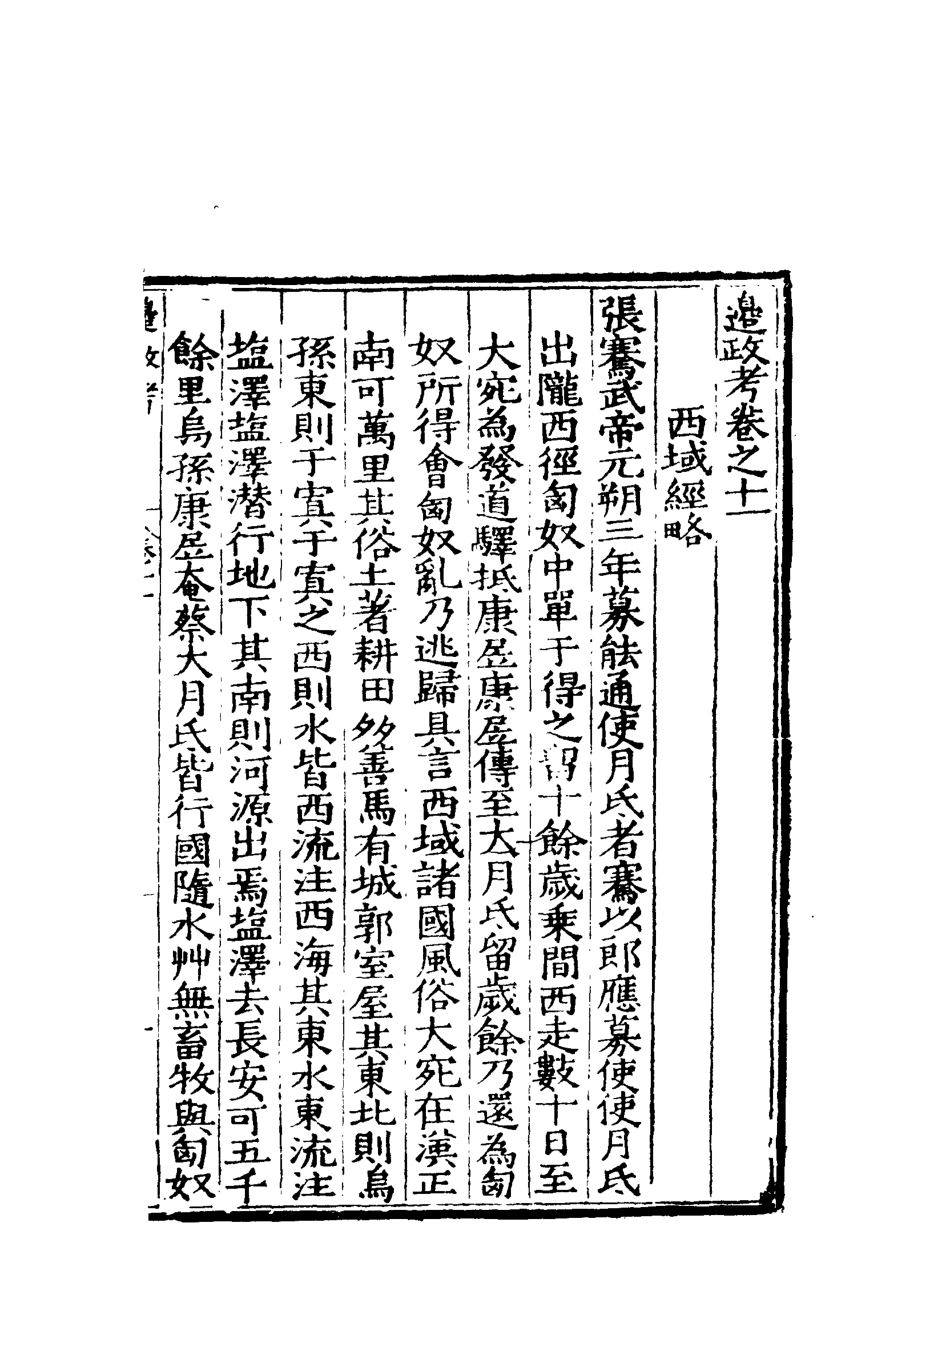 邉政考卷之十一
西域經略
張騫武帝元朔三年募能通使月氏者騫以郎應募使使月氏
出隴西徑匈奴中單于得之留十餘歲乘間西走數十日至
大宛為發道驛抵康居康居傳至大月氏留歲餘乃還為匈
奴所得會匈奴亂乃逃歸具言西域諸國風俗大宛在漢正
南可萬里其俗土著耕田多善馬有城郭室屋其東北則烏
孫東則于窴于窴之西則水皆西流注西海其東水東流注
塩澤塩澤潜行地下其南則河源出焉塩澤去長安可五千
餘里烏孫康居奄蔡大月氏皆行國隨水艸無畜牧與匈奴
邉政考